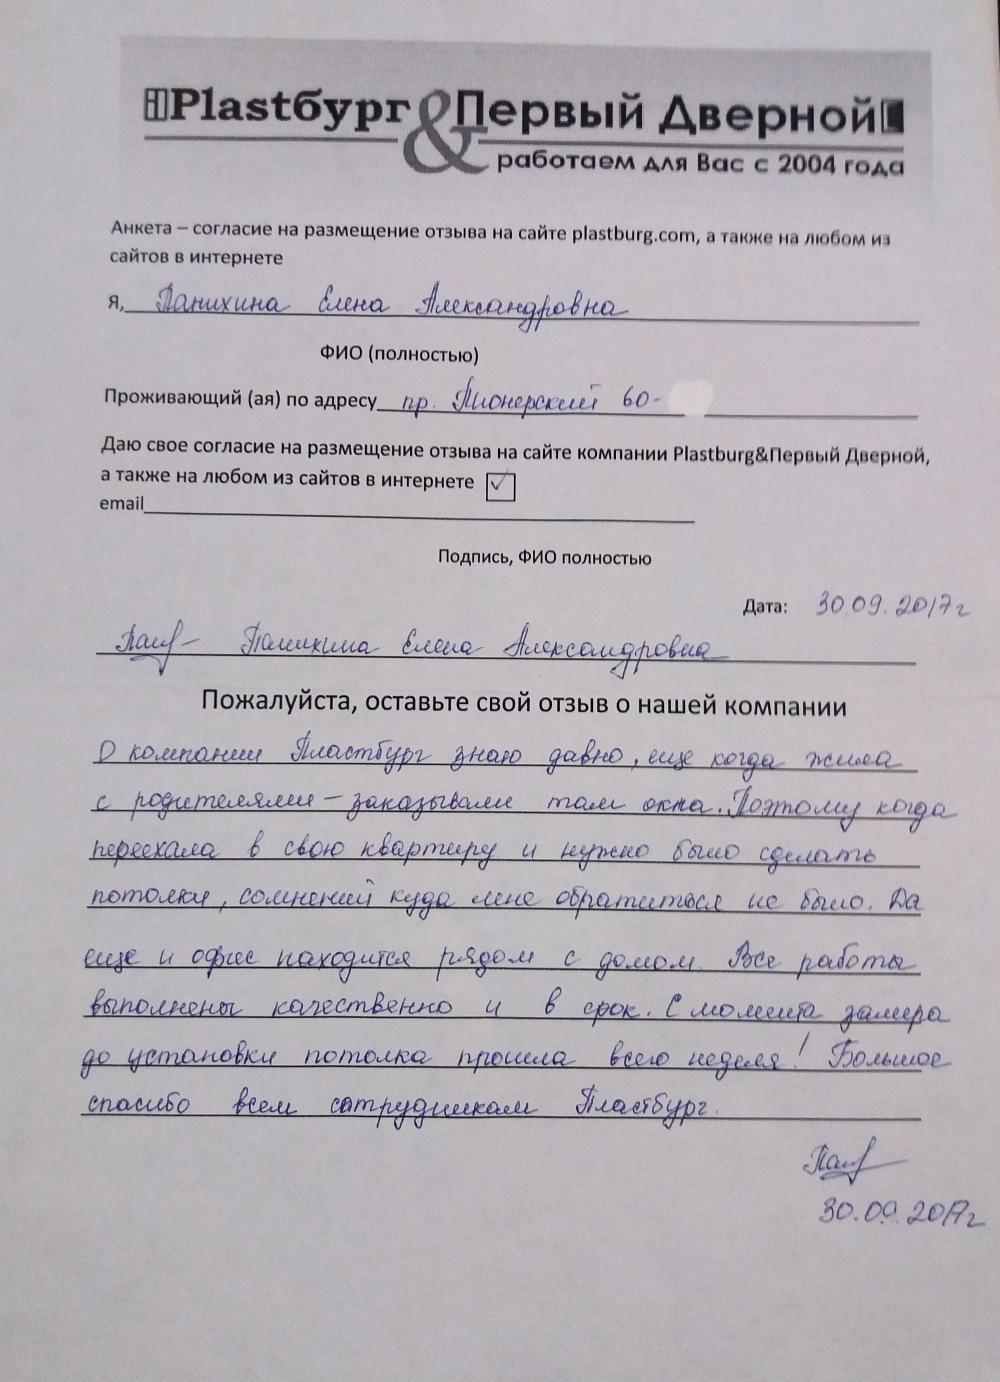 Plastбург & Первый Дверной
работаем для Вас с 2004 года
Анкета – согласие на размещение отзыва на сайте plastburg.com, а также на любом из
сайтов в интернете
Я, Панихина Елена Александровна
ФИО (полностью)
Проживающий (ая) по адресу пр. Пионерский 60-
Даю свое согласие на размещение отзыва на сайте компании Plastburg&Первый Дверной,
а также на любом из сайтов в интернете ✓
email
Подпись, ФИО полностью
Дата: 30.09.2017г
Панихина Елена Александровна
Пожалуйста, оставьте свой отзыв о нашей компании
О компании Пластбург знаю давно, еще когда жила
с родителями – заказывали там окна. Поэтому когда
переехала в свою квартиру и нужно было сделать
потолки, сомнений куда мне обратиться не было. Да
еще и офис находится рядом с домом. Все работы
выполнены качественно и в срок. С момента замера
до установки потолка прошла всего неделя! Большое
спасибо всем сотрудникам Пластбург.
30.09.2017г